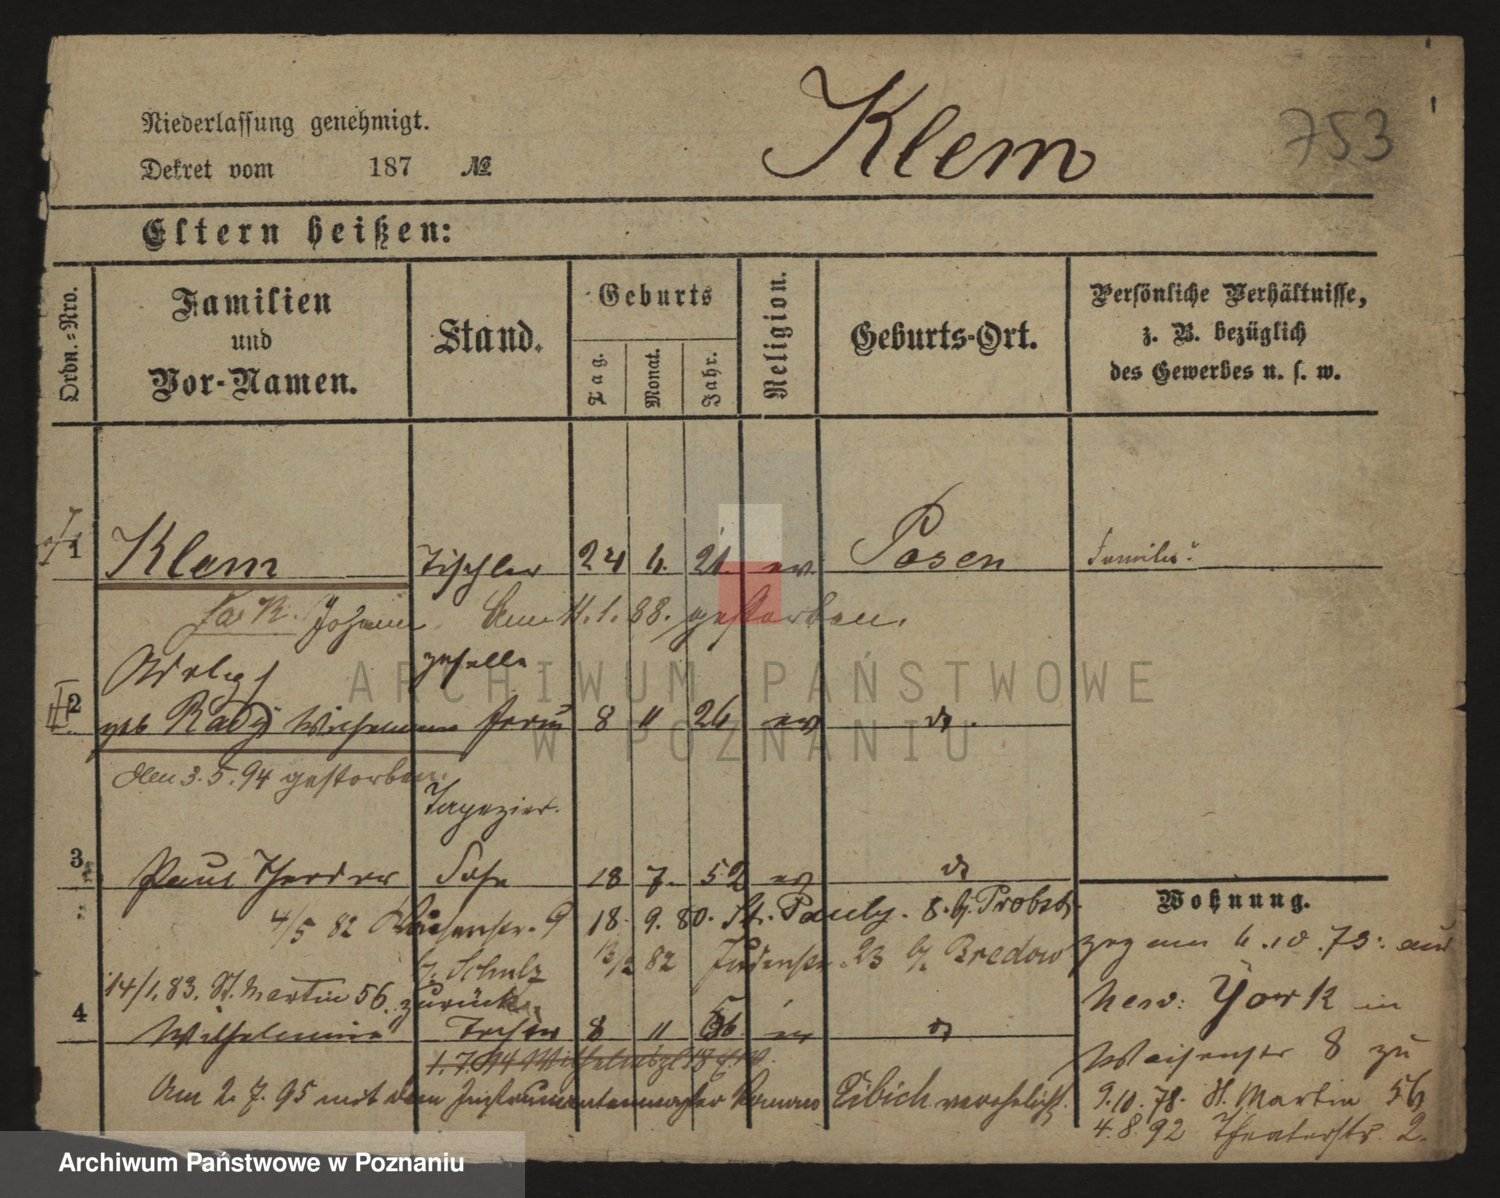 Niederlassung genehmigt.
Klem
753
Dekret vom 187 №
Eltern heißen:
Ordn.-Nro.
Familien
und
Vor-Namen.
Stand.
Geburts
Tag.
Monat.
Jahr.
Religion.
Geburts-Ort.
Persönliche Verhältnisse,
z. B. bezüglich
des Gewerbes u. s. w.
1 Klem Tischler 24 6. 21. ev. Posen Familie:
Johann Am 11.1.88. gestorben.
geselle
2 geb Rady Wilhelmine Frau 8 11 26 ev do.
Den 3.5.94 gestorben.
Tapezier.
3 Paul Theodor Sohn 18 7. 52 ev do
Wohnung.
4/5 82 Waisenstr. 9 18. 9. 80. St. Pauly. 8. b/. Probst.
b/. Schulz 13/2 82 Judenstr. 23 b/. Bredow
zog am 6.10.73. aus
14/1.83. St. Martin 56. zurück.
New: York in
4 Wilhelmine Tochter 8 11 56 ev do
Waisenstr 8 zu
Am 2.7.95 mit dem Instrumentenmacher Roman Eibich verehelicht.
9.10.78. St. Martin 56
4.8.92 Theaterstr. 2.
ARCHIWUM PAŃSTWOWE
W POZNANIU
Archiwum Państwowe w Poznaniu